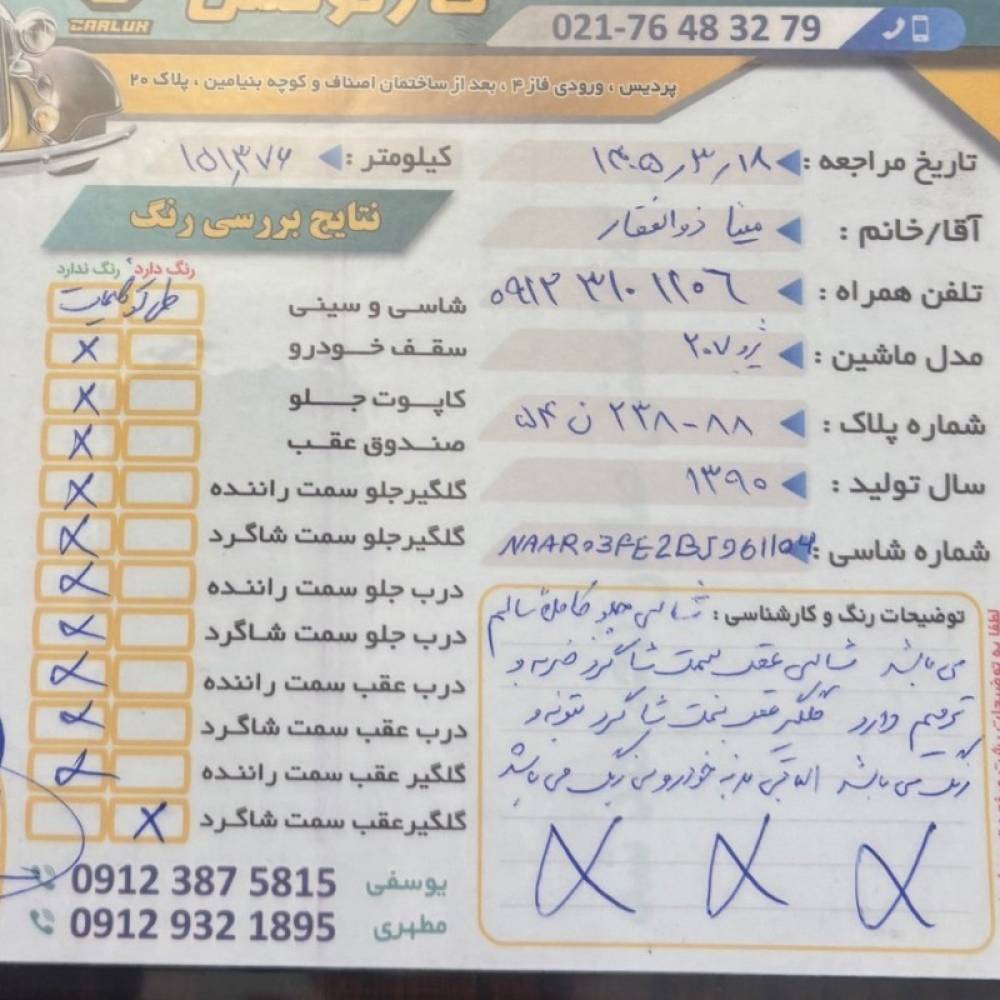 CARLUX
021-76 48 32 79
پردیس ، ورودی فاز ۴ ، بعد از ساختمان اصناف و کوچه بنیامین ، پلاک ۲۰
تاریخ مراجعه : ۱۴۰۵/۳/۱۸
کیلومتر : ۱۵۱,۳۷۶
آقا/خانم : مینا ذوالفقار
تلفن همراه : ۰۹۱۲ ۳۱۰ ۱۲۰۶
مدل ماشین : پژو ۲۰۷
شماره پلاک : ۵۴ ن ۲۳۸-۸۸
سال تولید : ۱۳۹۰
شماره شاسی : NAAR03FE2BJ961104
توضیحات رنگ و کارشناسی : شاسی جلو کاملا سالم
می باشد شاسی عقب سمت شاگرد ضربه و
ترمیم دارد گلگیر عقب سمت شاگرد تونه و
رنگ می باشد الباقی بدنه خودرو بی رنگ می باشد
نتایج بررسی رنگ
رنگ دارد رنگ ندارد
شاسی و سینی
سقف خودرو X
کاپوت جلو X
صندوق عقب X
گلگیر جلو سمت راننده X
گلگیر جلو سمت شاگرد X
درب جلو سمت راننده X
درب جلو سمت شاگرد X
درب عقب سمت راننده X
درب عقب سمت شاگرد X
گلگیر عقب سمت راننده X
گلگیر عقب سمت شاگرد X
یوسفی 0912 387 5815
مطهری 0912 932 1895